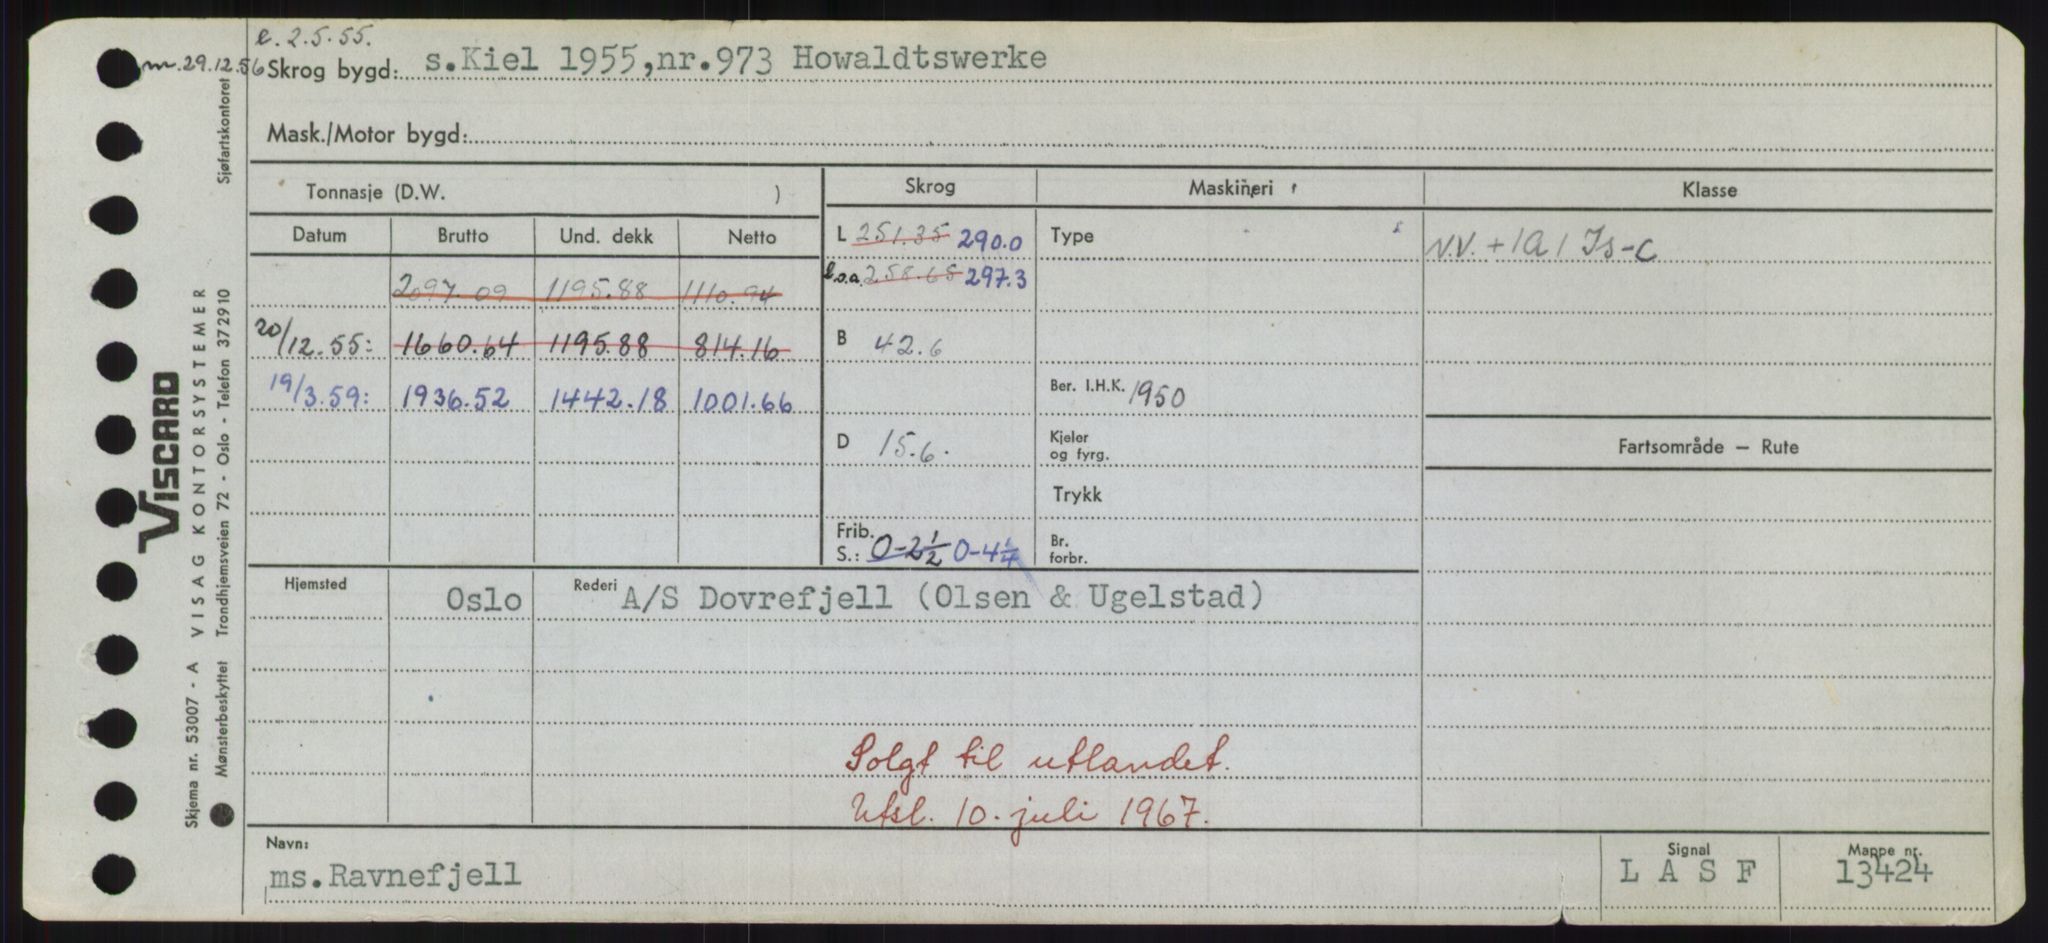 e. 2.5.55.
m. 29.12.56
Skrog bygd: s.Kiel 1955,nr.973 Howaldtswerke
Mask./Motor bygd:
Tonnasje (D.W. ) Skrog Maskineri Klasse
Datum Brutto Und. dekk Netto
L 251.35 290.0 Type N.V. + 1A1 Is-C
2097.09 1195.88 1110.94 l.o.a. 258.65 297.3
20/12.55: 1660.64 1195.88 814.16 B 42.6
19/3.59: 1936.52 1442.18 1001.66 Ber. I.H.K. 1950
D 15.6. Kjeler og fyrg. Fartsområde — Rute
Trykk
Frib. S.: 0-2½ 0-4¼ Br. forbr.
Hjemsted Oslo Rederi A/S Dovrefjell (Olsen & Ugelstad)
Solgt til utlandet.
Utsl. 10. juli 1967.
Navn: Signal Mappe nr.
ms.Ravnefjell L A S F 13424
Skjema nr. 53007 - A VISAG KONTORSYSTEMER
Mønsterbeskyttet Trondhjemsveien 72 - Oslo - Telefon 372910 Sjøfartskontoret
VISCARD